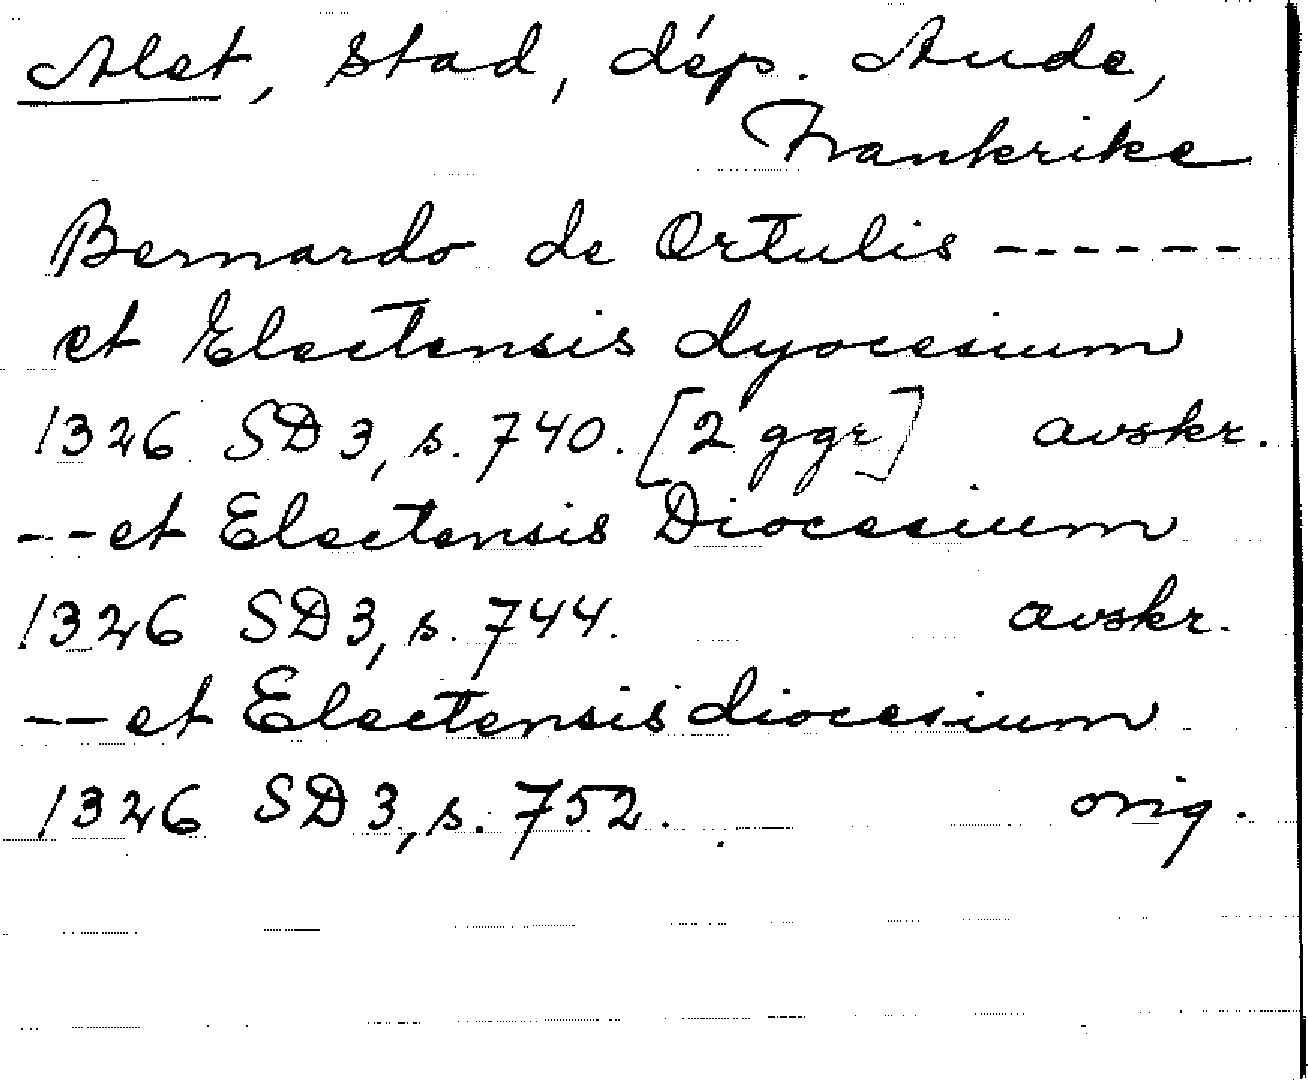 Alet, stad, dép. Aude,
Frankrike
Bernardo de Ortulis ------
et Electensis dyocesium
1326 SD3, s. 740. [2 ggr] avskr.
--et Electensis Diocesium
1326 SD3, s. 744. avskr.
--et Electensis diocesium
1326 SD3, s. 752. orig.